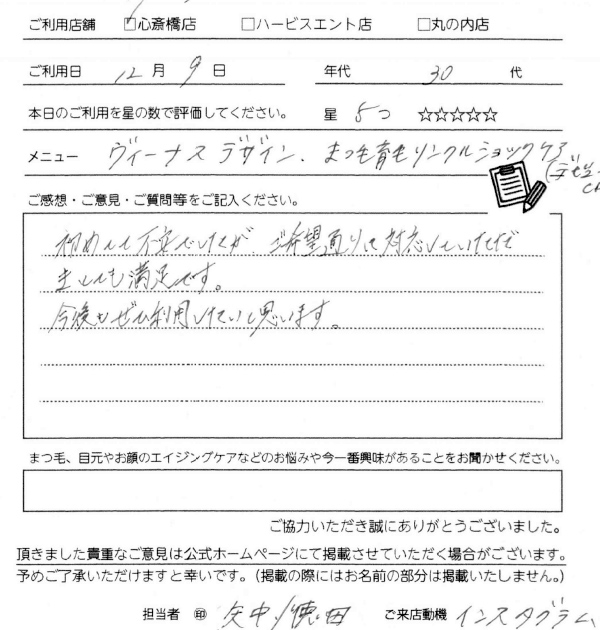 ご利用店舗 ☑心斎橋店 □ハービスエント店 □丸の内店
ご利用日 12月9日 年代 30代
本日のご利用を星の数で評価してください。 星 5つ ☆☆☆☆☆
メニュー ヴィーナスデザイン、まつ毛育毛リンクルショックケア
ご感想・ご意見・ご質問等をご記入ください。
初めてで不安でしたが、ご希望通りに対応していただき
ましても満足です。
今後もぜひ利用したいと思います。
まつ毛、目元やお顔のエイジングケアなどのお悩みや今一番興味があることをお聞かせください。
ご協力いただき誠にありがとうございました。
頂きました貴重なご意見は公式ホームページにて掲載させていただく場合がございます。
予めご了承いただけますと幸いです。（掲載の際にはお名前の部分は掲載いたしません。）
担当者 ㊞ 矢中/徳田 ご来店動機 インスタグラム